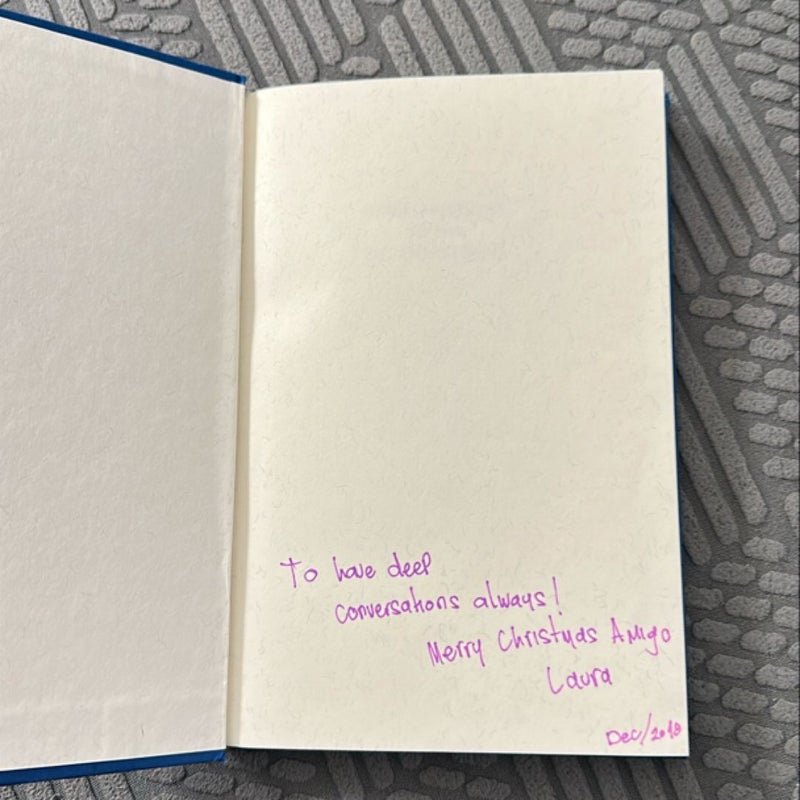 To have deep
conversations always!
Merry Christmas Amigo
Laura
Dec/2018